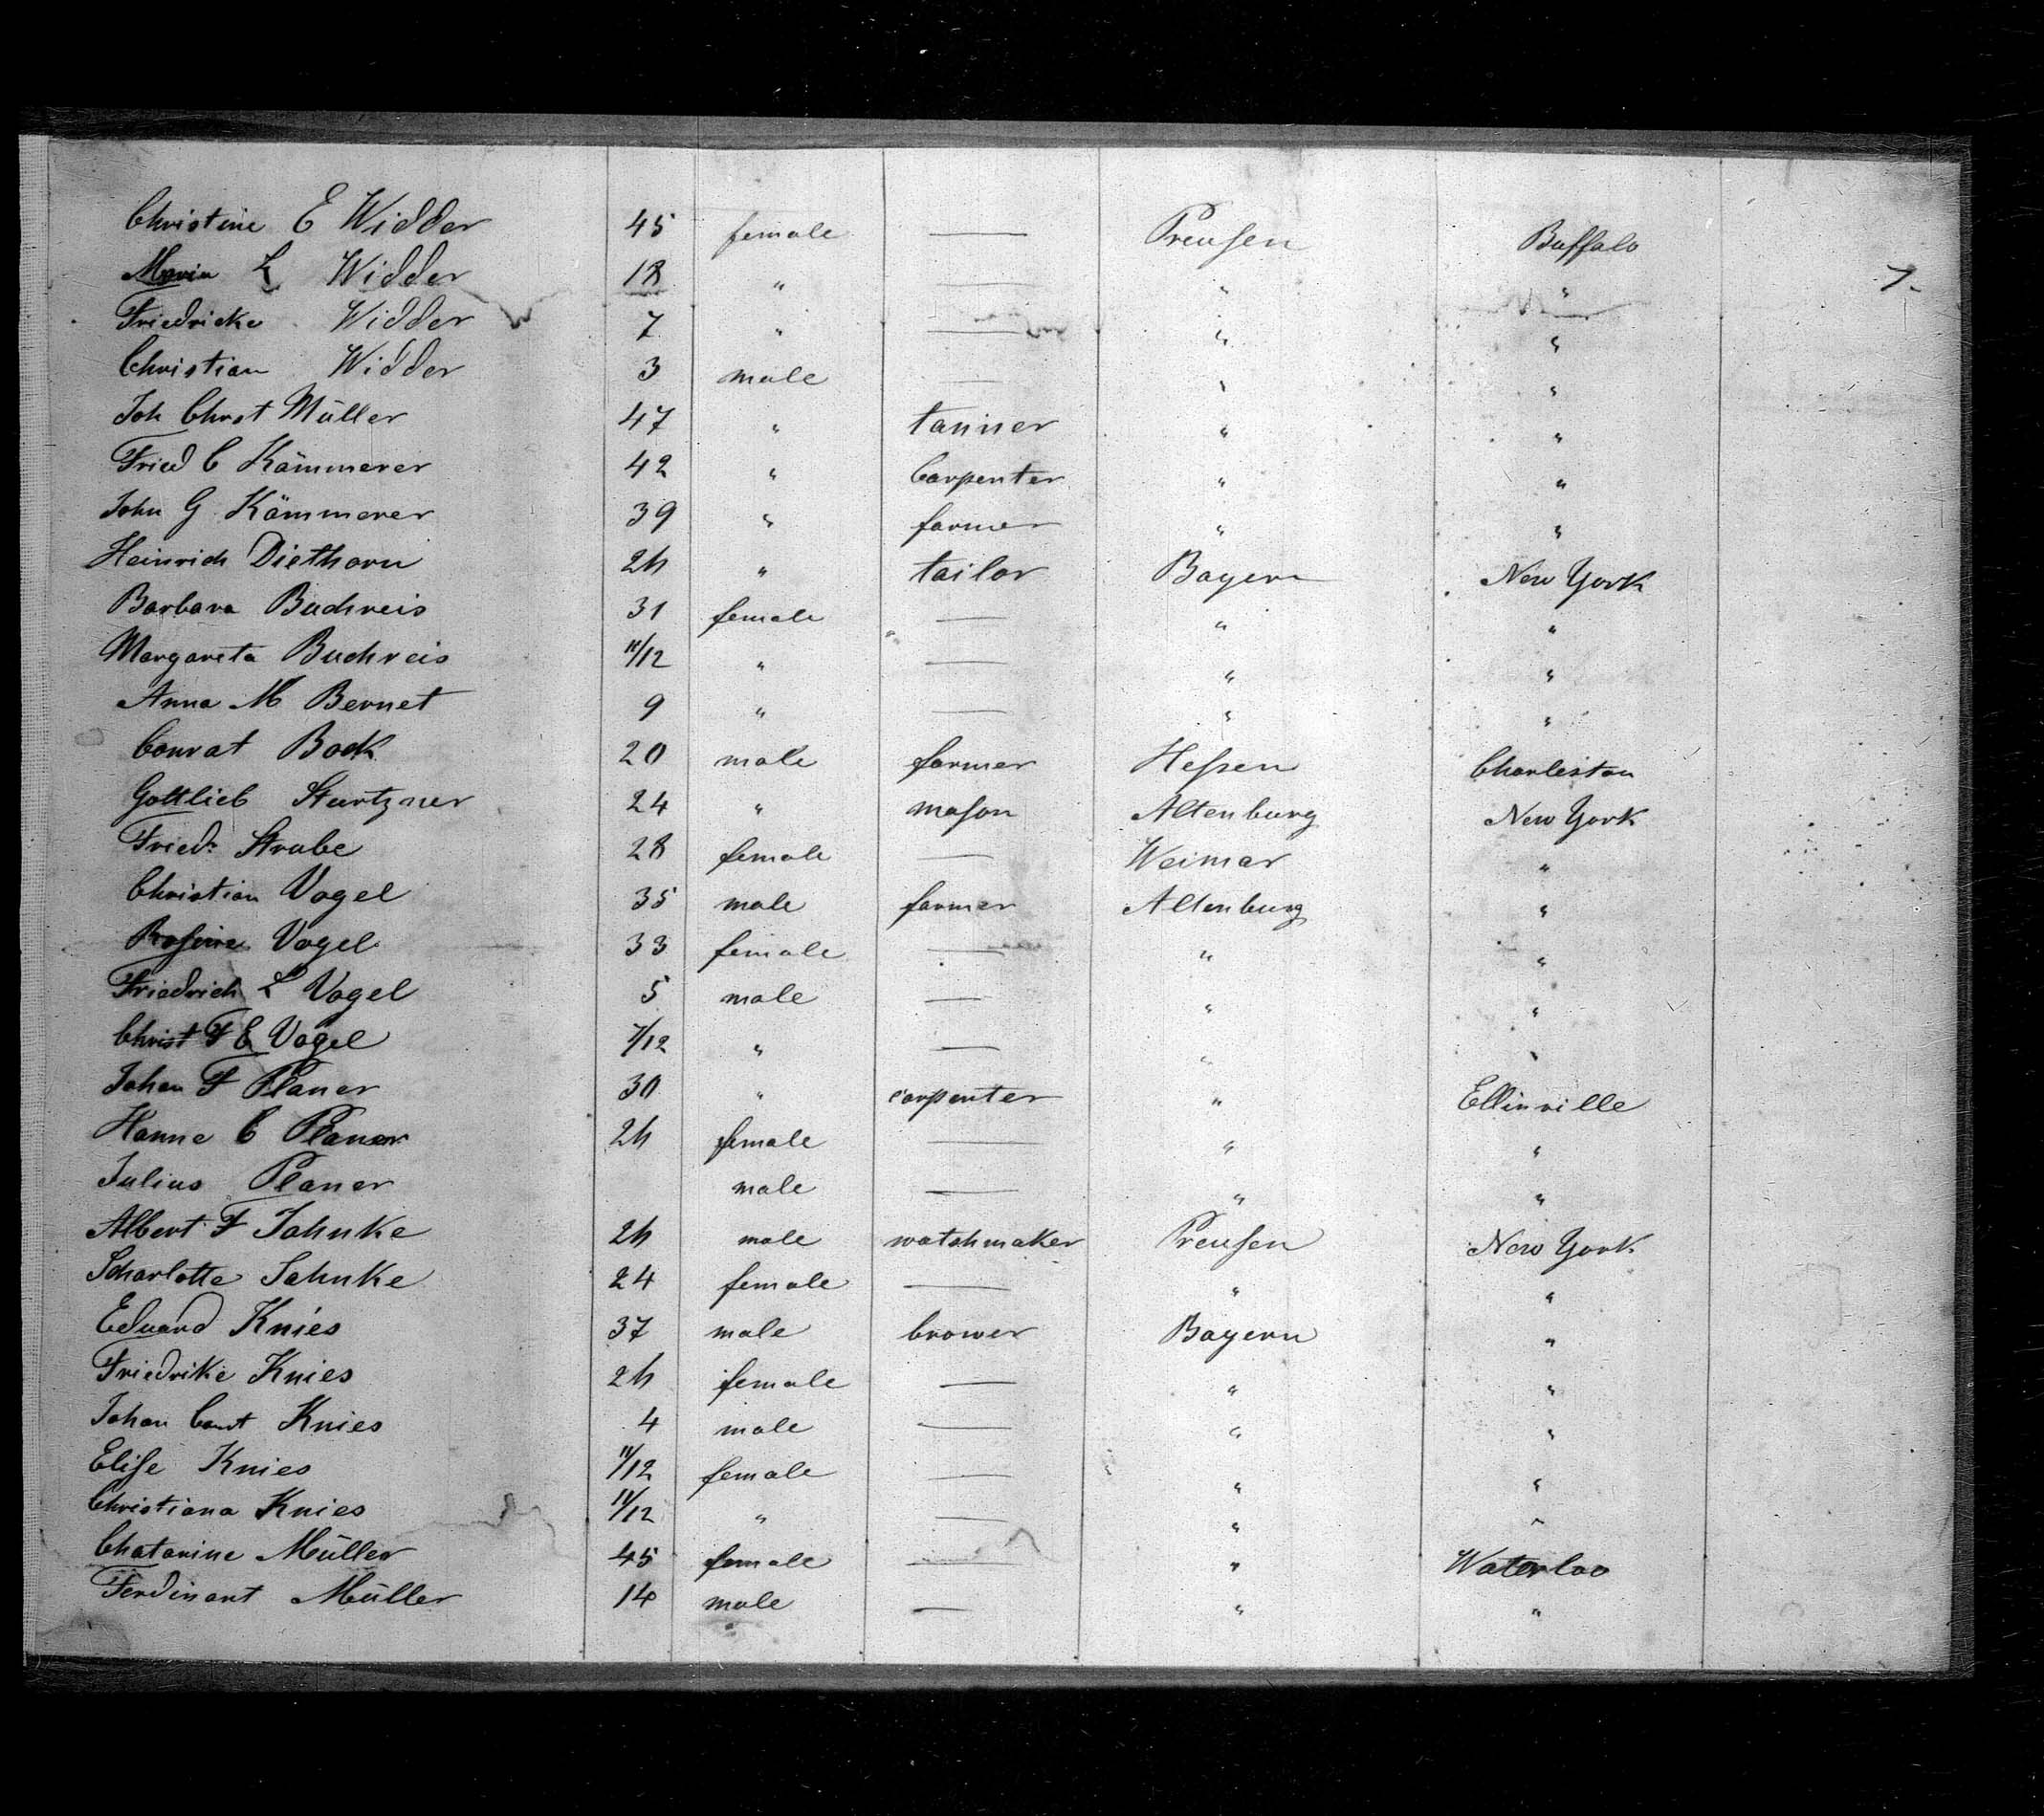 Christine E Widder 45 female — Preusen Buffalo
Maria L Widder 18 " — " "
7.
Friedricke Widder 7 " — " "
Christian Widder 3 male — " "
Joh Christ Müller 47 " tanner " "
Fried C Kämmerer 42 " Carpenter " "
John G Kämmerer 39 " farmer " "
Heinrich Diethorn 2h " tailor Bayern New York
Barbara Buchreis 31 female — " "
Margareta Buchreis 11/12 " — " "
Anna M Bernet 9 " — " "
Conrat Bock 20 male farmer Hessen Charleston
Gottlieb Sturtzner 24 " mason Altenburg New York
Friedr Strube 28 female — Weimar "
Christian Vogel 35 male farmer Altenburg "
Rosine Vogel 33 female — " "
Friedrich L Vogel 5 male — " "
Christ F E Vogel 7/12 " — " "
Johan F Planer 30 " carpenter " Ellinville
Hanne C Planer 2h female — " "
Julius Planer male — " "
Albert F Jahnke 2h male watchmaker Preusen New York
Scharlotte Jahnke 24 female — " "
Eduard Knies 37 male brower Bayern "
Friedrike Knies 2h female — " "
Johan Knies 4 male — " "
Elise Knies 11/12 female — " "
Christiana Knies 11/12 " — " "
Chatarine Müller 45 female — " Waterloo
Ferdinant Müller 14 male — " "